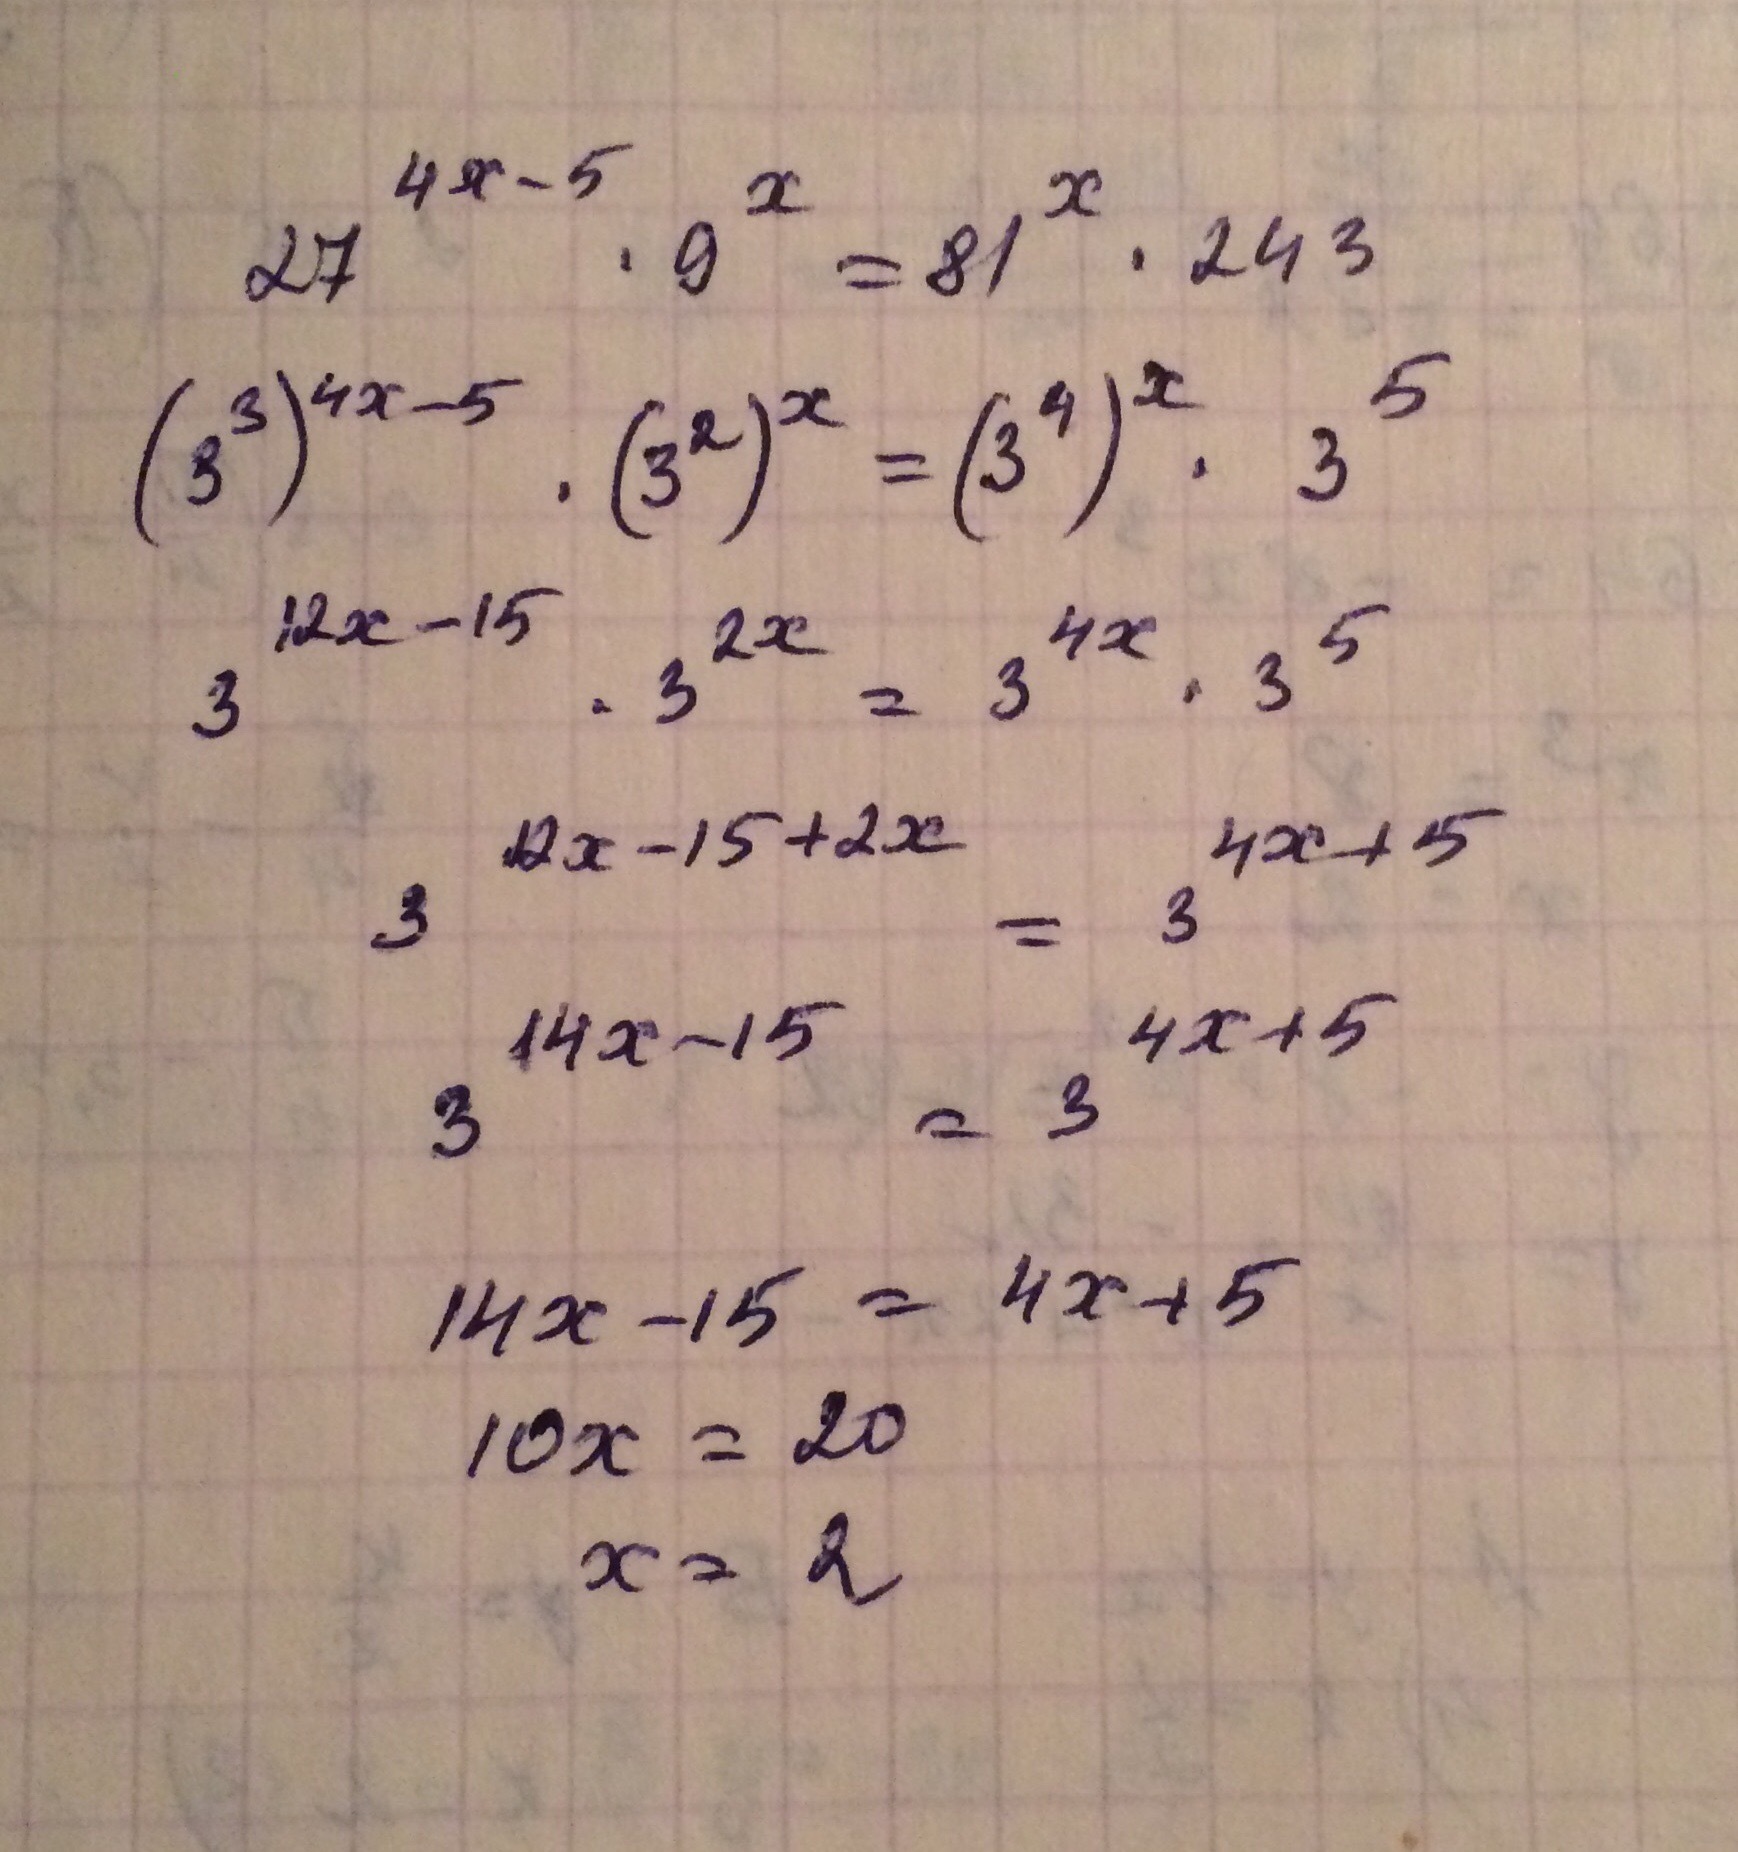 27^{4x-5} · 9^x = 81^x · 243
(3^3)^{4x-5} · (3^2)^x = (3^4)^x · 3^5
3^{12x-15} · 3^{2x} = 3^{4x} · 3^5
3^{12x-15+2x} = 3^{4x+5}
3^{14x-15} = 3^{4x+5}
14x-15 = 4x+5
10x = 20
x = 2